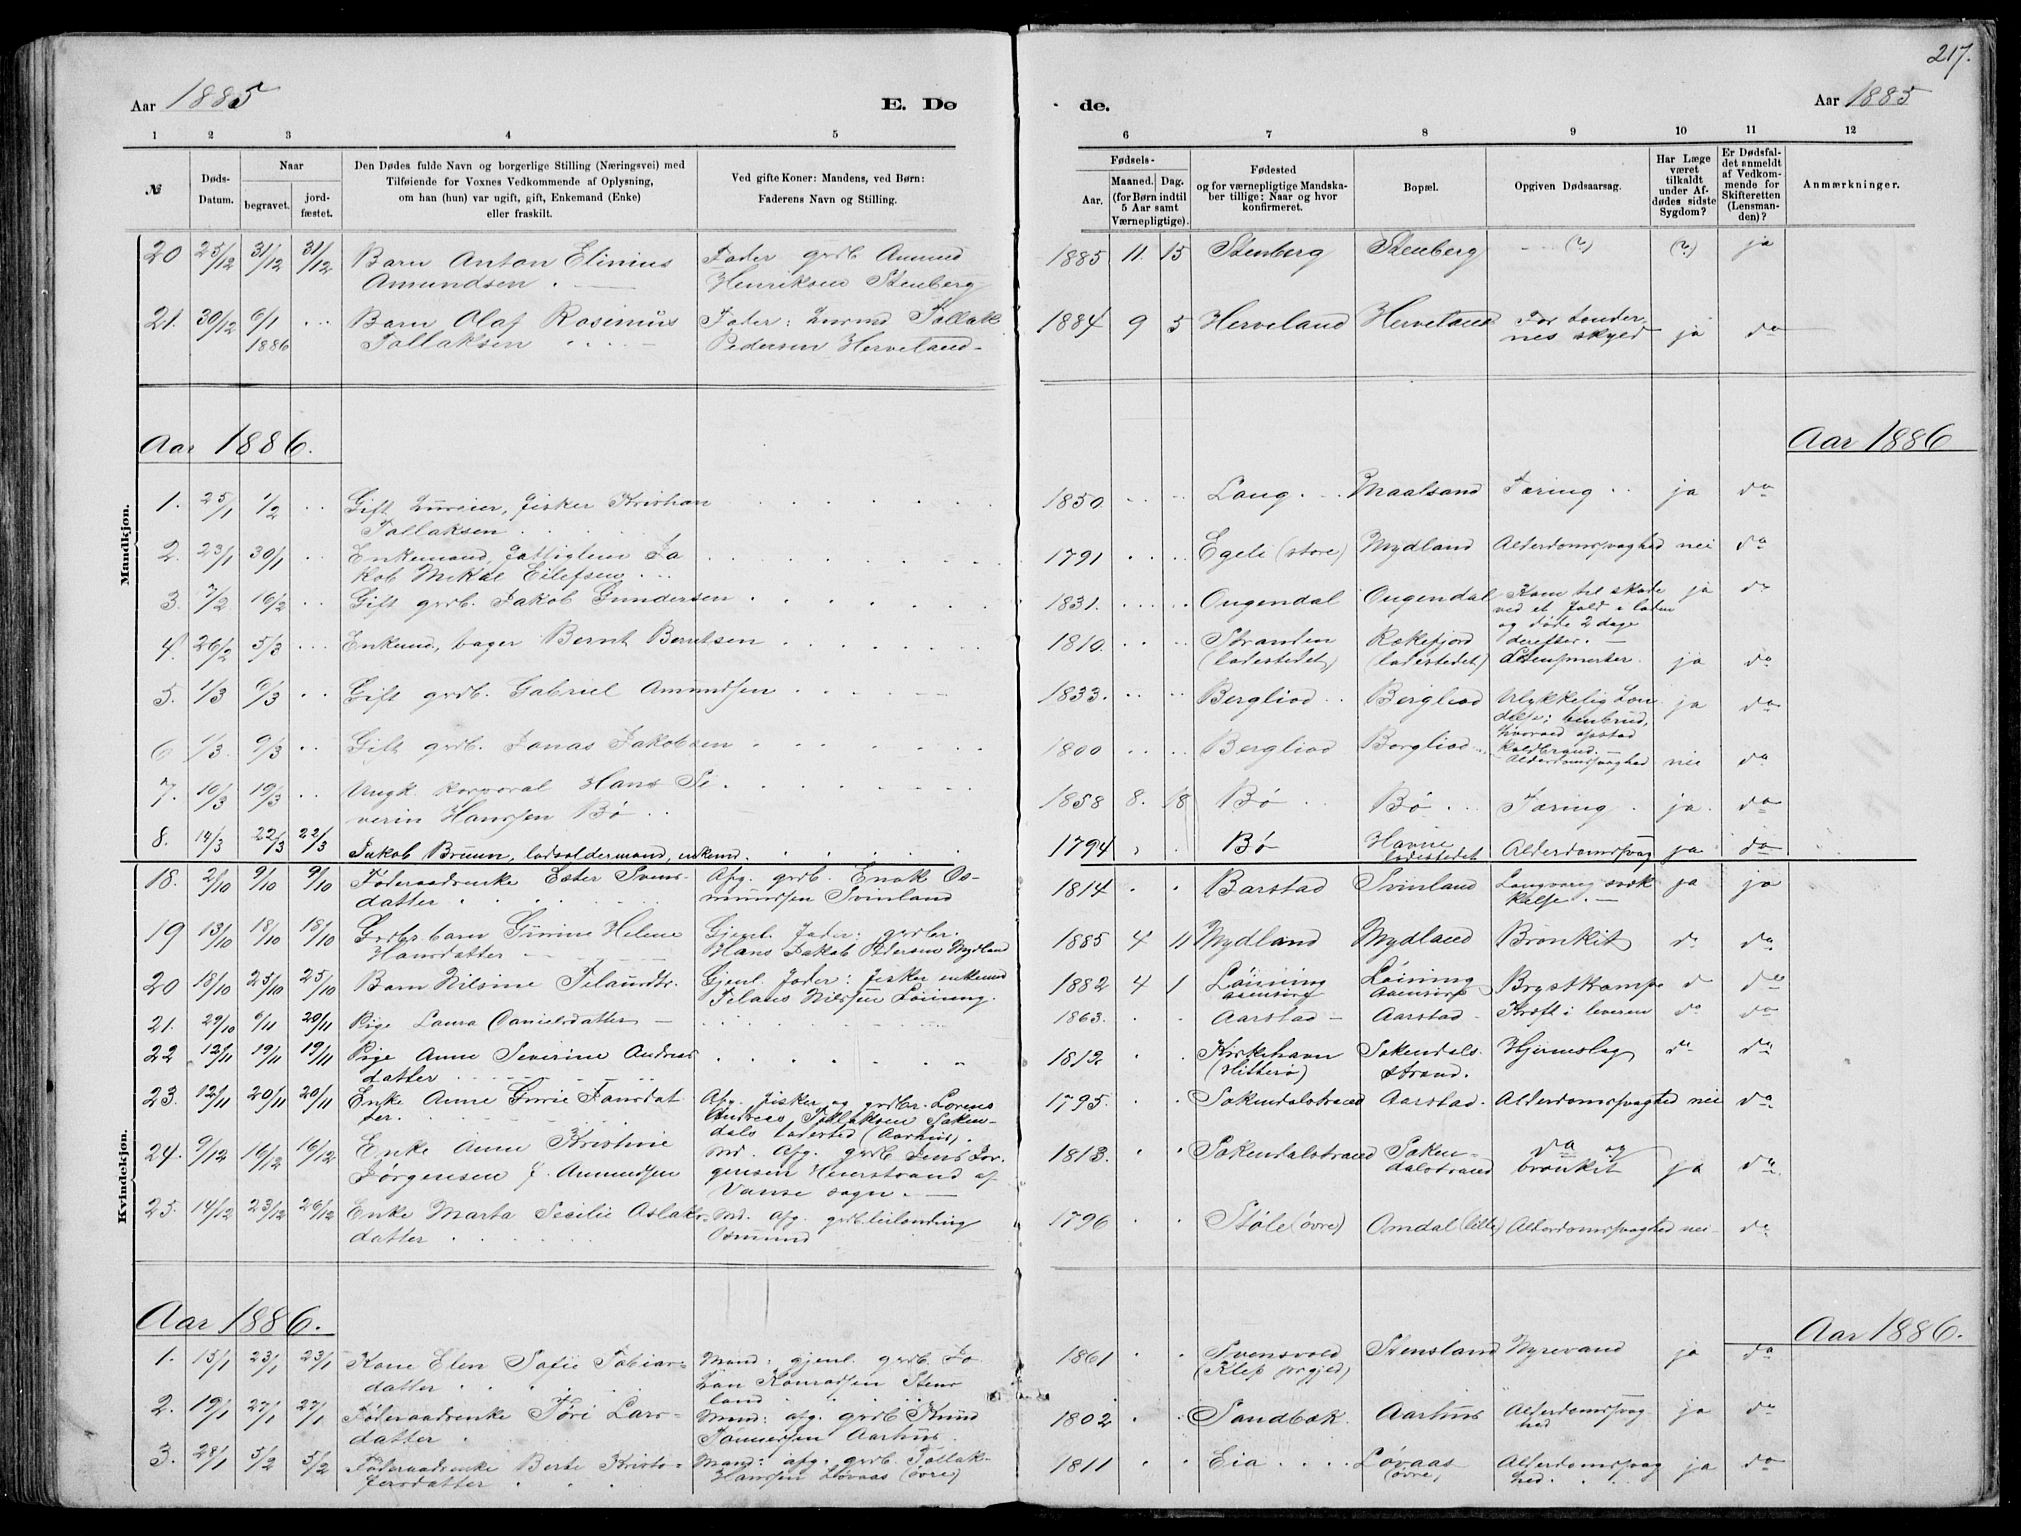 217.
Aar 1885 E. Dø
de. Aar 1885
1 2 3 4 5 6 7 8 9 10 11 12
№
Døds-Datum.
Naar
begravet.
jordfæstet.
Den Dødes fulde Navn og borgerlige Stilling (Næringsvei) med
Tilføiende for Voxnes Vedkommende af Oplysning,
om han (hun) var ugift, gift, Enkemand (Enke)
eller fraskilt.
Ved gifte Koner: Mandens, ved Børn:
Faderens Navn og Stilling.
Fødsels-
Aar.
Maaned. Dag.
(for Børn indtil
5 Aar samt
Værnepligtige).
Fødested
og for værnepligtige Mandska-
ber tillige: Naar og hvor
konfirmeret.
Bopæl.
Opgiven Dødsaarsag.
Har Læge
været
tilkaldt
under Af-
dødes sidste
Sygdom?
Er Dødsfal-
det anmeldt
af Vedkom-
mende for
Skifteretten
(Lensman-
den)?
Anmærkninger.
20 25/12 31/12 31/12 Barn Anton Elinius Fader grdb. Amund 1885 11 15 Stenberg Stenberg (?) (?) ja
Amundsen Henriksen Stenberg
21. 30/12 6/1 Barn Olaf Rasimus Fader: Tollak 1884 9 5 Herveland Herveland For tænder ja do
1886 Tollaksen Pedersen Herveland nes skyld
Aar 1886. Aar 1886
Mandkjøn.
1. 25/1 1/2 Gift fisker Kristian 1850 Laug Maalsand Tæring ja do
Tollaksen
2. 23/1 30/1 Enkemand, fattiglem Ja 1791 Egeli (store) Mydland Alderdomssvaghed nei do
kob Mikal Eilefsen
3. 7/2 16/2 Gift grdb. Jakob Gundersen 1831. Ougendal Ougendal Kom til skade ja do
ved et fald i laden
og døde 2 dage
derefter.
4. 26/2 5/3 Enkemd, bager Bernt Berntsen 1810. Stranden Rækefjord ja do
(ladestedet) (ladestedet)
5. 1/3 6/3 Gift grdb. Gabriel Amundsen 1833. Bergliod Bergliod Ulykkelig hæn ja do
delse; benbrud,
hvorved opstod
koldbrand.
6 1/3. 9/3 Gift grdb. Jonas Jakobsen 1800 Bergliod Bergliod Alderdomssvaghed nei do
7. 10/3 19/3 Ungk. korporal Hans Se 1858 8. 18 Bø Bø Tæring ja. do
verin Hanssen Bø
8. 14/3 22/3 22/3 Jakob Bruun, lodsoldermand, enkemd. 1794 Bø Havne Alderdomssvag ja do
ladestedet
Kvindekjøn.
18. 2/10 9/10 9/10 Føderaadsenke Ester Svens- Afg. grdb. Enok Os- 1814 Barstad Svinland Langvarig svæk ja ja
datter mundsen Svinland kelse.
19 13/10 18/10 18/10 Grdbr. barn Gurine Helene Gjenl. Fader: grdbr. 1885 4 11 Mydland Mydland Bronkit do do
Hansdatter Hans Jakob Pedersen Mydland
20 18/10 25/10 25/10 Barn Nilsine Gjenl. Fader: fisker enkemd 1882 4 1 Løining Løining Brystkrampe d do
Nilssen Løining. Aaensire Aaensire
21. 29/10 6/11 20/11 Pige Laura Danielsdatter 1863. Aarstad Aarstad Kræft i leveren do do
22 12/11 19/11 19/11 Pige Anne Severine Andreas 1812 Kirkehavn Sokendals- Hjerneslag do do
datter (Hitterø) strand.
23. 12/11 20/11 20/11 Enke Anne Gurie Jansdat Afg. fisker og grdbr. Lorens 1795. Sokendalsstrand Aarstad Alderdomssvaghed nei do
ter. Andreas Tollaksen Soken-
dals ladested (Aarhus).
24. 9/12 16/12 16/12 Enke Anne Kristine Md. Afg. grdb Jens Jør 1813. Sokendalsstrand Soken- do og ja do
Jørgensen f. Amundsen gensen Heierstrand af dalsstrand bronkit
Vanse sogn.
25. 14/12 23/12 26/12 Enke Marta Secilie Aslaks- Md. afg. 1796 Støle (øvre) Omdal (lille) Alderdomssvaghed nei do
datter Osmund
Aar 1886. Aar 1886.
1. 13/1 23/1 23/1 Kone Elen Sofie Tobias- Mand: gjenl. grdb. Jo 1861 Svensvold Stensland Nyrevand ja do
datter han Konradsen Stens (Klep prgjeld)
land
2. 19/1 27/1 27/1 Føderaadsenke Jøri Lars- Mand: afg. grdb Knud 1802 Sandbæk. Aarhus Alderdomssvag ja do
datter Tønnessen Aarhus. hed
3. 28/1 5/2 5/2 Føderaadsenke Berte Kristo- Mand: afg. grdb. Tollak 1811 Eia Løvaas Alderdomssvag ja do
fersdatter Hanssen Løvaas (øvre) (øvre) hed